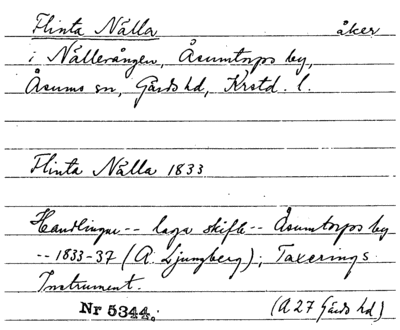 Flinta Nälla åker
i Nällevången, Åsumtorps by,
Åsums sn, Gärds hd, Krstd. l.
Flinta Nälla 1833
Handlingar -- laga skifte -- Åsumtorps by
-- 1833-37 (A. Ljungberg); Taxerings
Instrument.
Nr 5344. (A 27 Gärds hd.)